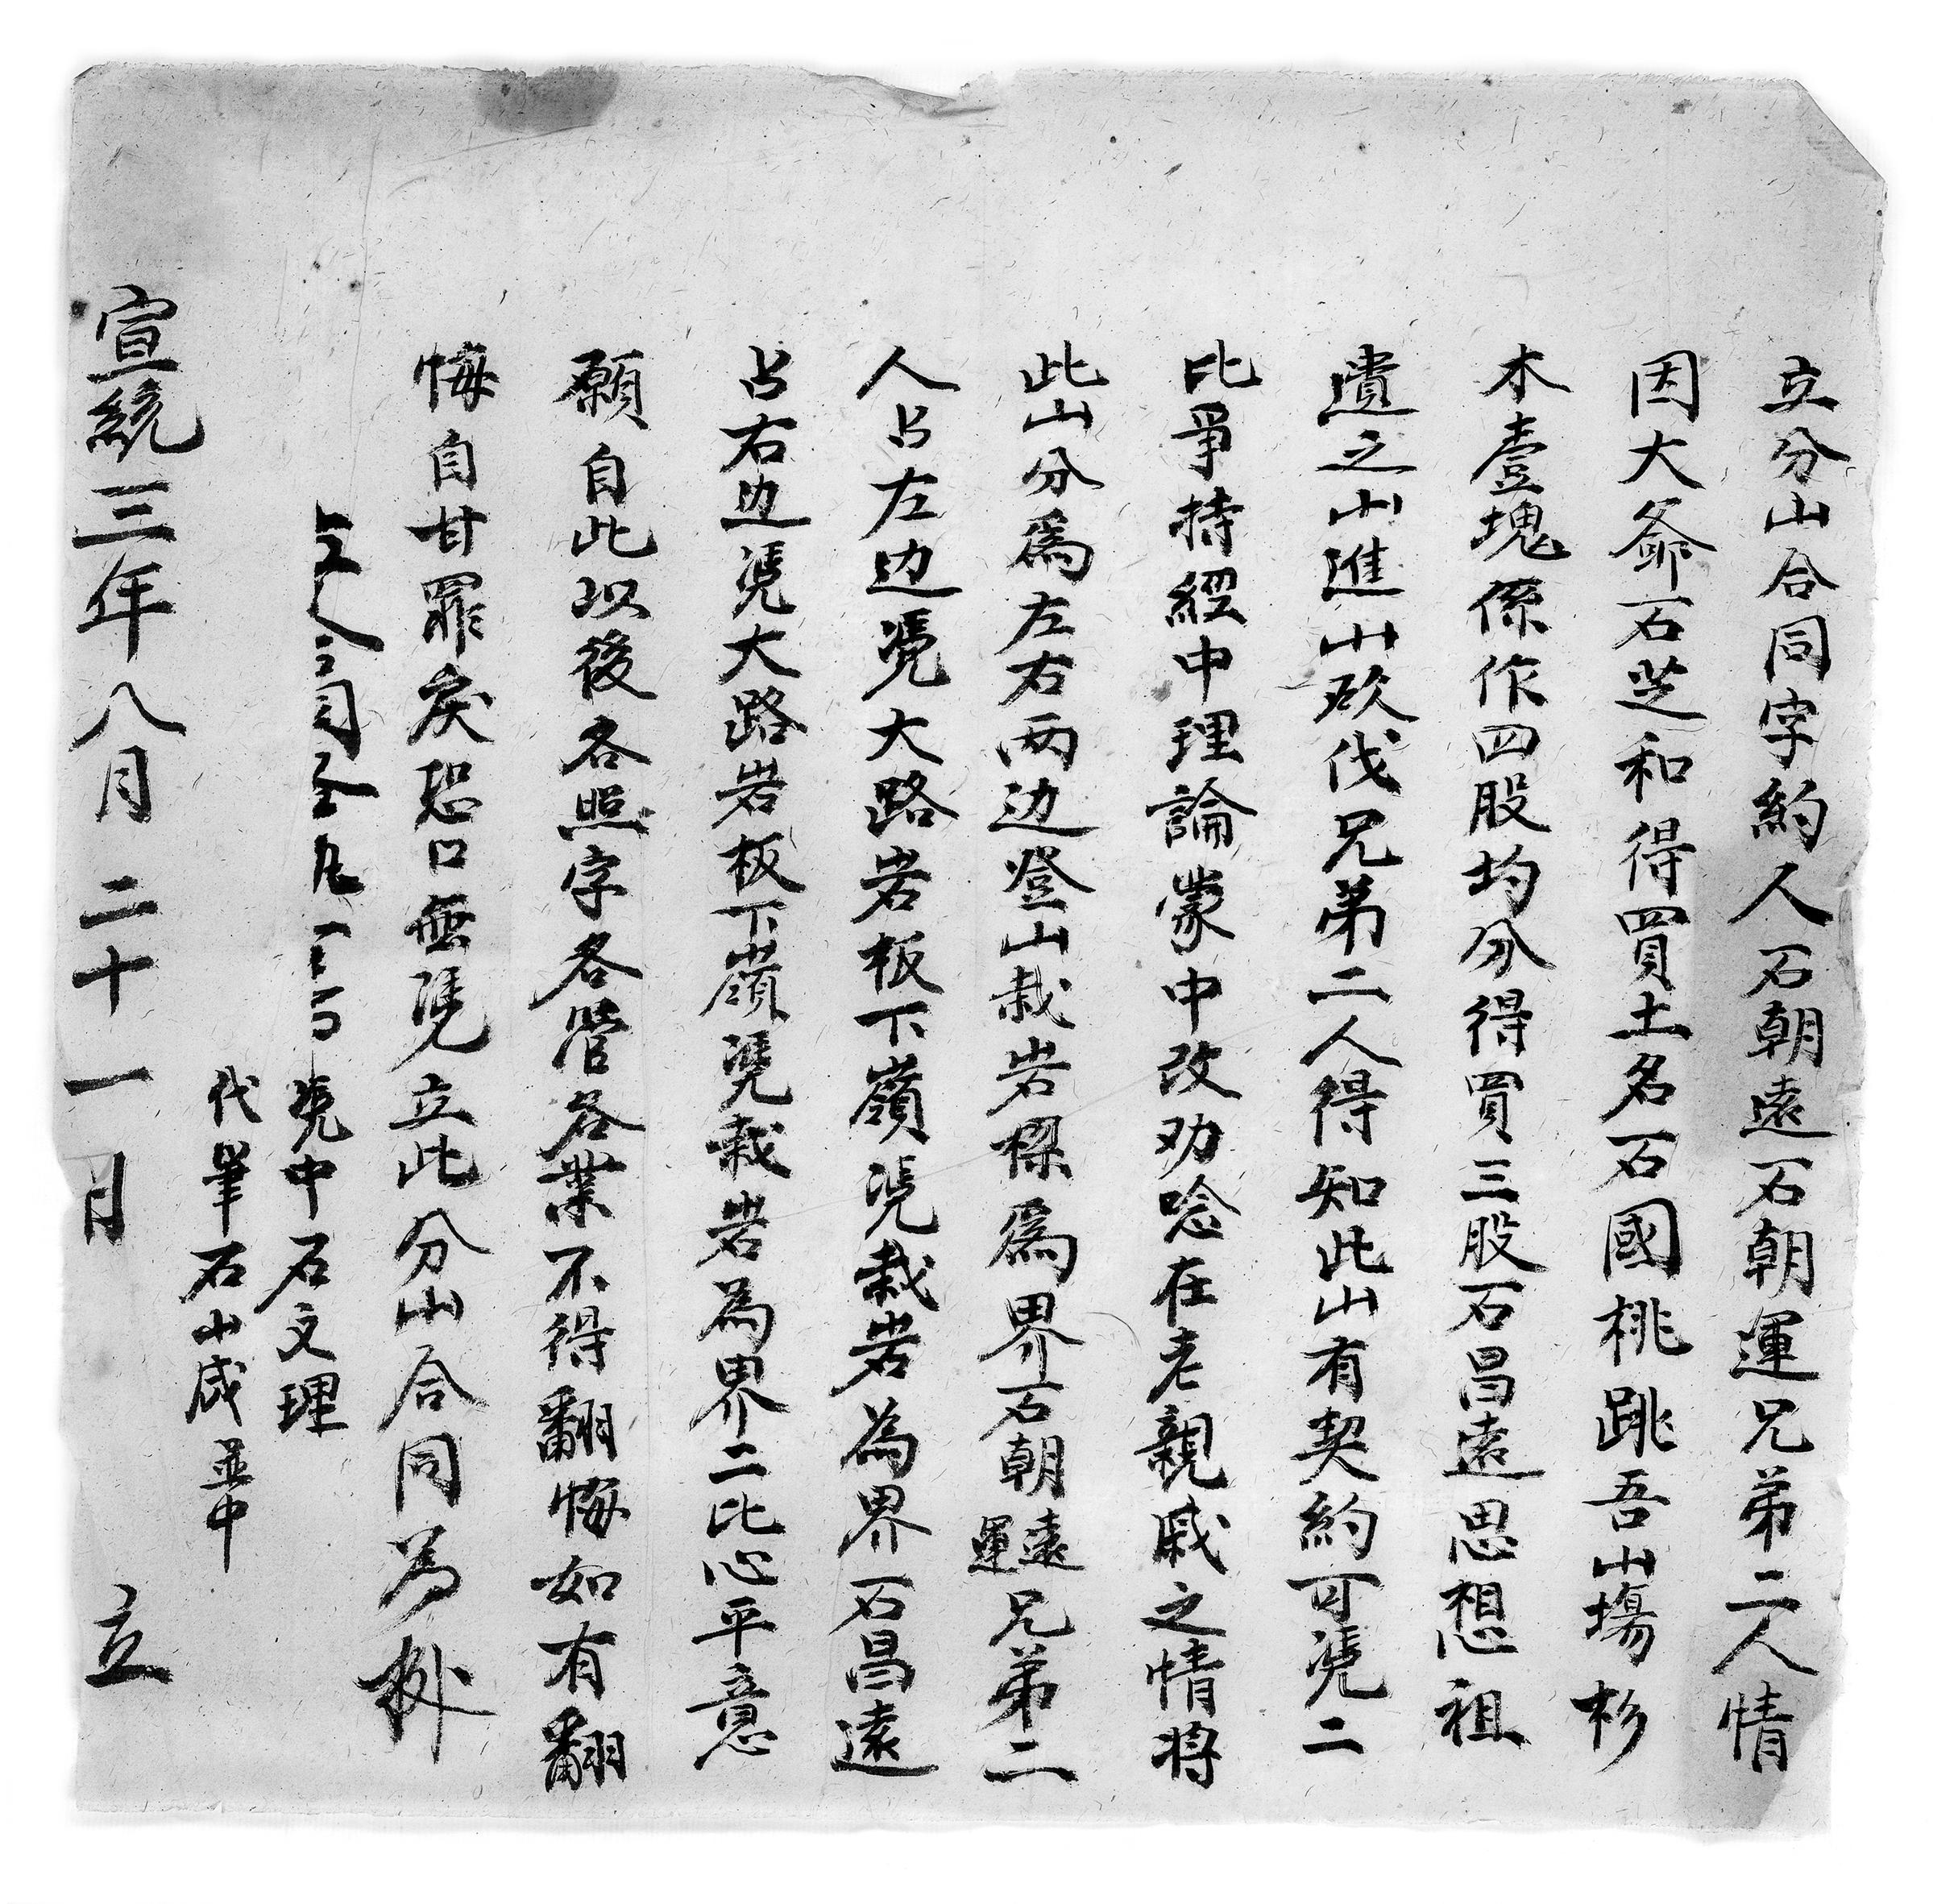 立分山合同字約人石朝遠石朝運兄弟二人情
因大爺石芝和得買土名石國桃跳吾山塲杉
木壹塊係作四股均分得買三股石昌遠思想祖
遺之山進山砍伐兄弟二人得知此山有契約可凭二
比爭持經中理論蒙中改劝唸在老親戚之情将
此山分為左右两边登山栽岩樑為界石朝遠運兄弟二
人占左边凭大路岩板下嶺凭栽岩為界石昌遠
占右边凭大路岩板下嶺凭栽岩為界二比心平意
願自此以後各照字各管各業不得翻悔如有翻
悔自甘罪戾恐口無凭立此分山合同為拠
凭中石文理
代筆石山成並中
宣統三年八月二十一月立